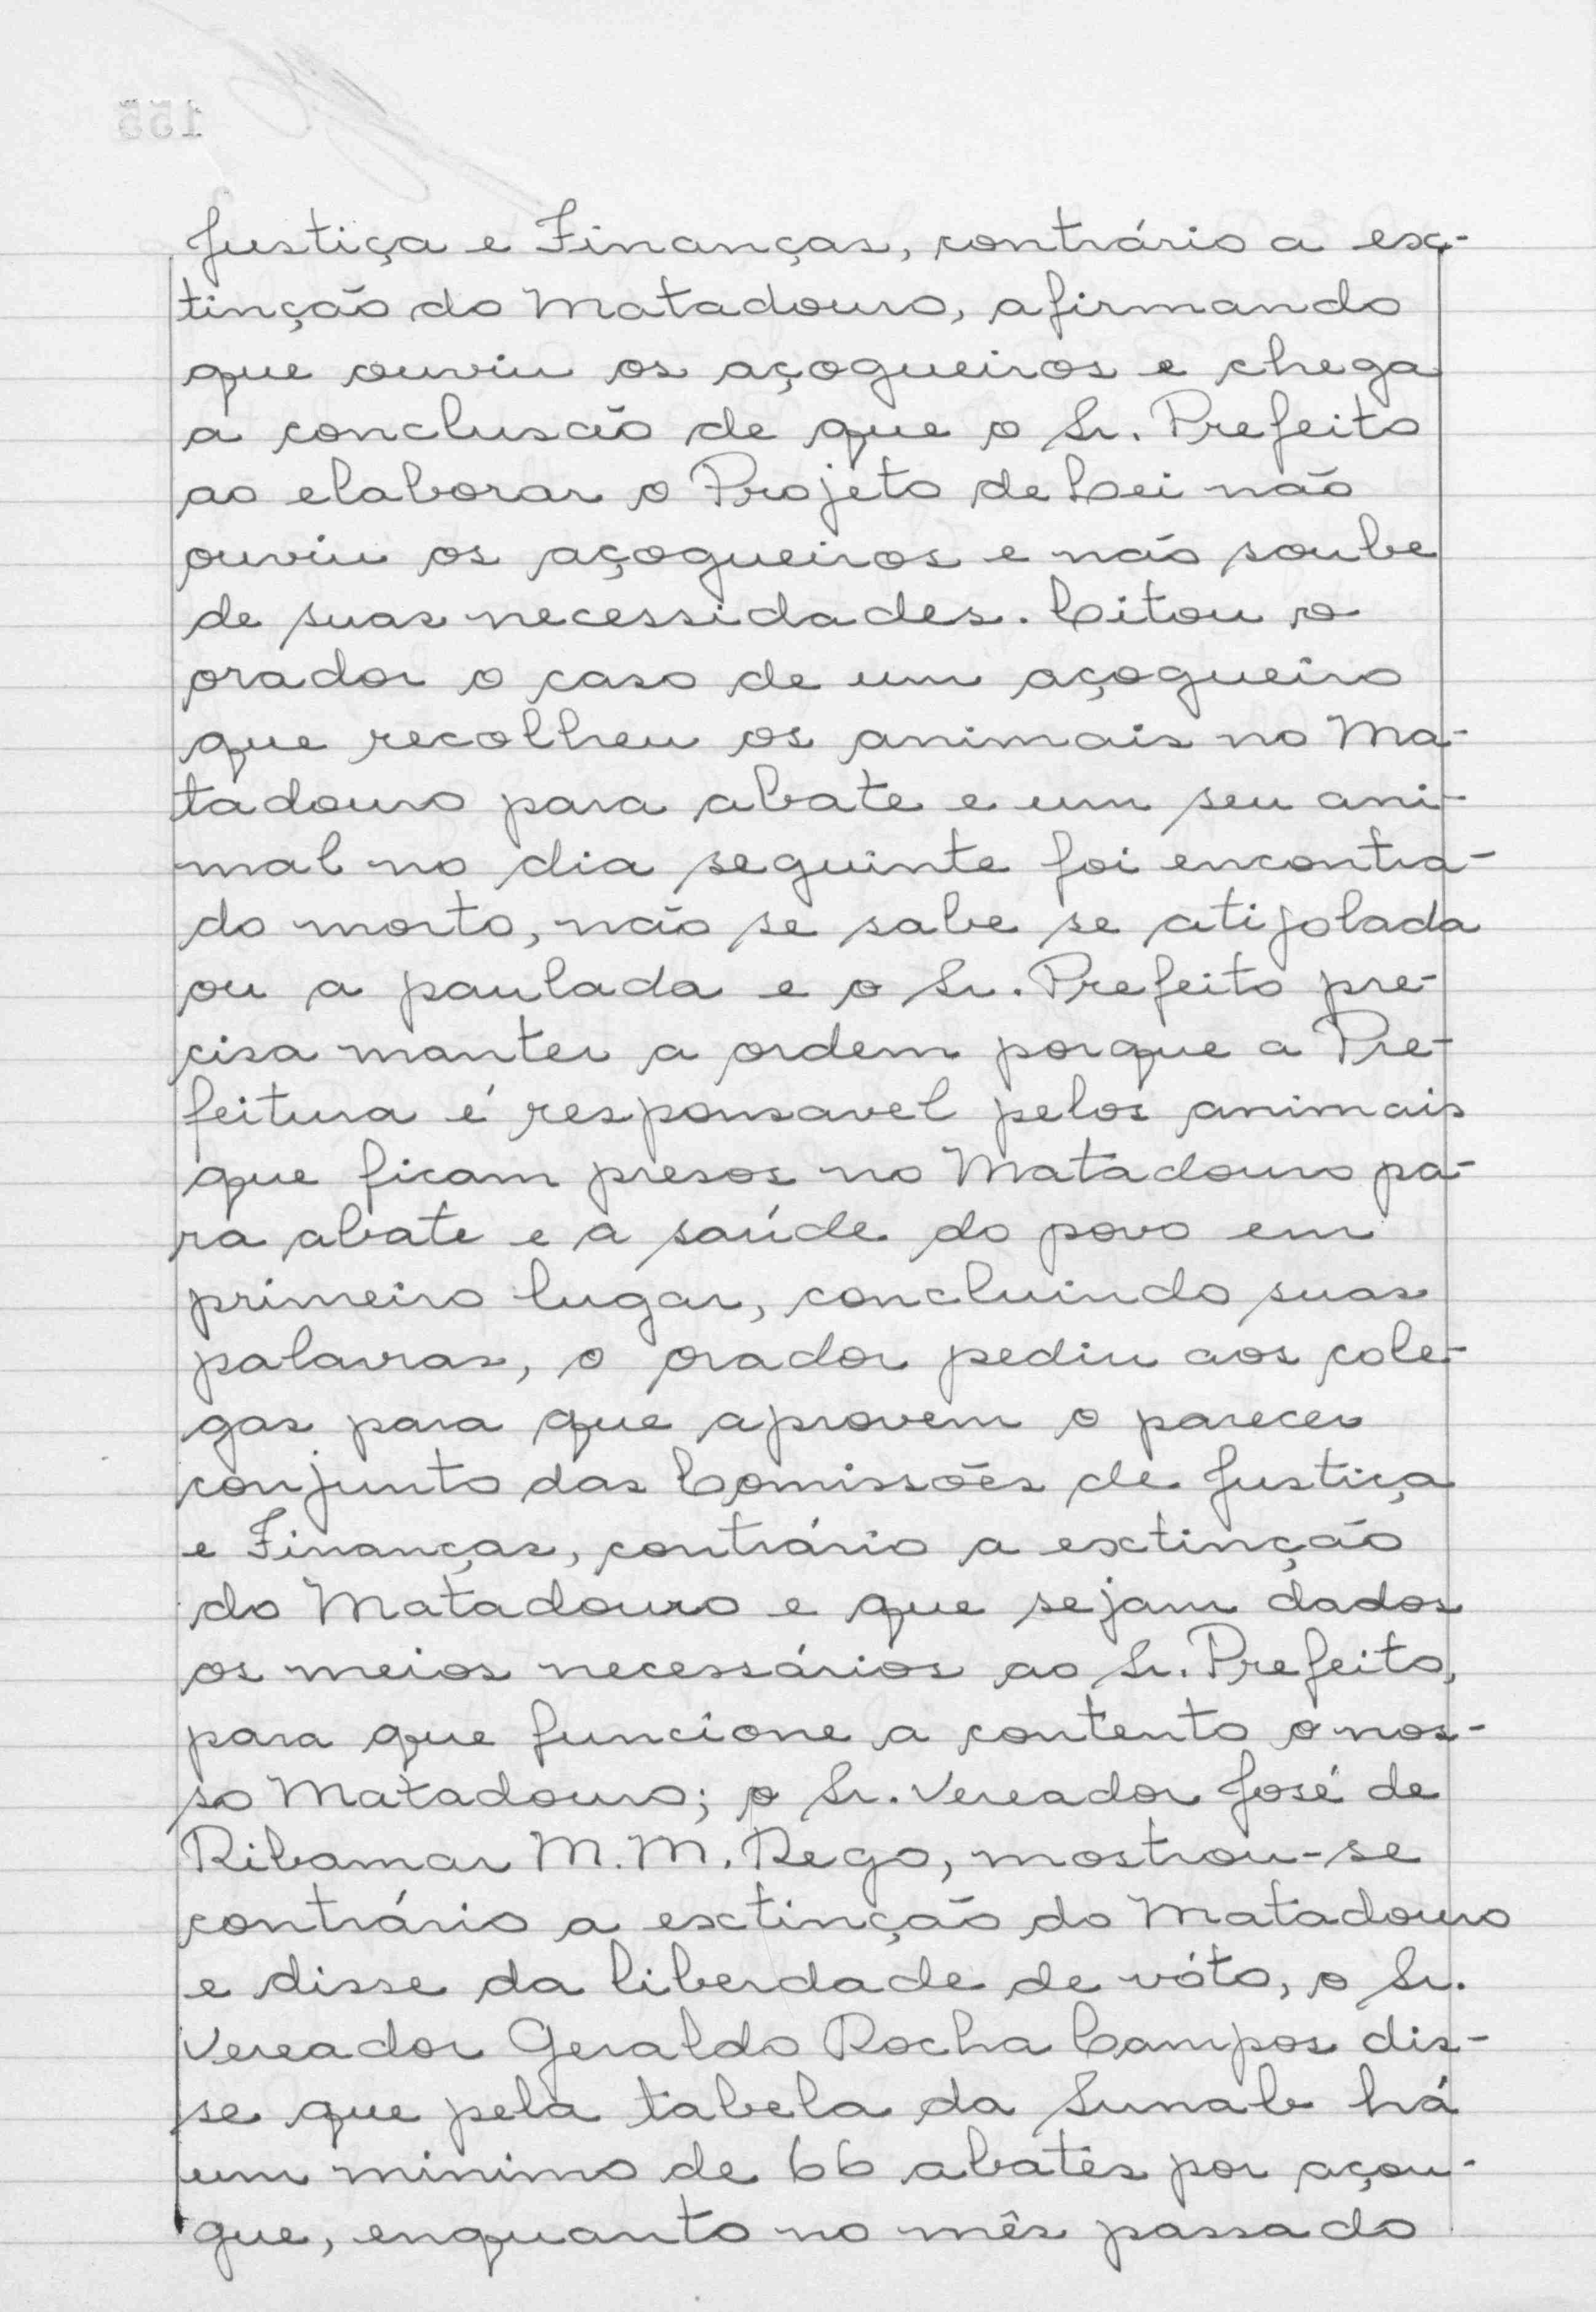 Justiça e Finanças, contrário a ex-
tinção do Matadouro, afirmando
que ouviu os açogueiros e chega
a conclusão de que o Sr. Prefeito
ao elaborar o Projeto de Lei não
ouviu os açogueiros e não soube
de suas necessidades. Citou o
orador o caso de um açogueiro
que recolheu os animais no Ma-
tadouro para abate e um seu ani-
mal no dia seguinte foi encontra-
do morto, não se sabe se atijolada
ou a paulada e o Sr. Prefeito pre-
cisa manter a ordem porque a Pre-
feitura é responsavel pelos animais
que ficam presos no Matadouro pa-
ra abate e a saúde do povo em
primeiro lugar, concluindo suas
palavras, o orador pediu aos cole-
gas para que aprovem o parecer
conjunto das Comissões de Justiça
e Finanças, contrário a extinção
do Matadouro e que sejam dados
os meios necessários ao Sr. Prefeito,
para que funcione a contento o nos-
so Matadouro; o Sr. Vereador José de
Ribamar M. M. Rego, mostrou-se
contrário a extinção do Matadouro
e disse da liberdade de vóto, o Sr.
Vereador Geraldo Rocha Campos dis-
se que pela tabela da Sunab há
um minimo de 66 abates por açou-
gue, enquanto no mês passado